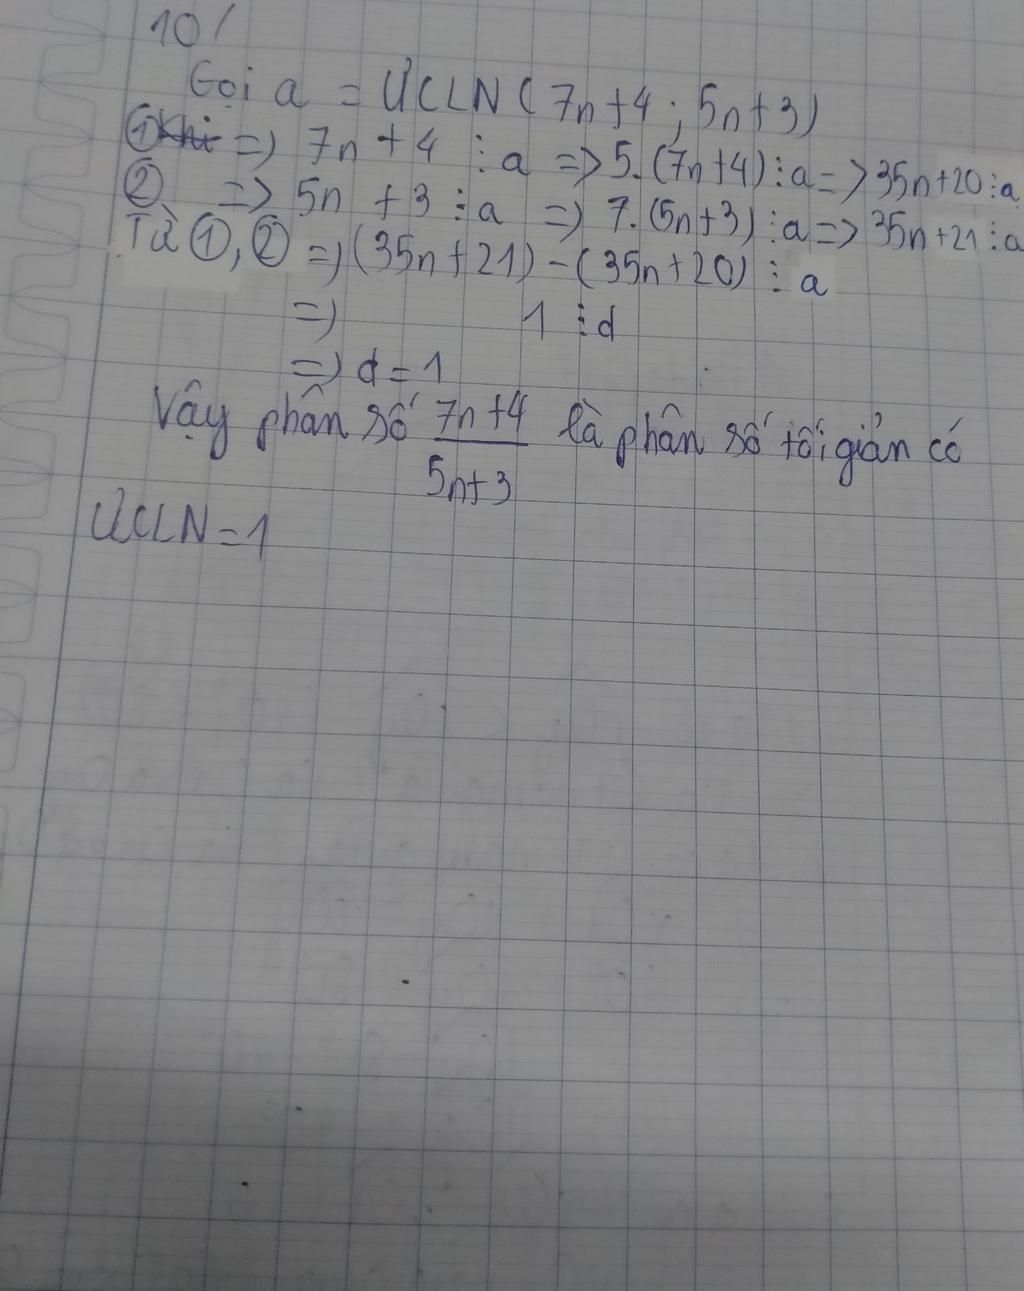 10/
Gọi a = ƯCLN(7n+4; 5n+3)
① Khi => 7n + 4 ⋮ a => 5.(7n+4) ⋮ a => 35n+20 ⋮ a
② => 5n + 3 ⋮ a => 7.(5n+3) ⋮ a => 35n+21 ⋮ a
Từ ①, ② => (35n+21) - (35n+20) ⋮ a
=> 1 ⋮ d
=> d = 1
Vậy phân số 7n+4 là phân số tối giản có
5n+3
ƯCLN = 1